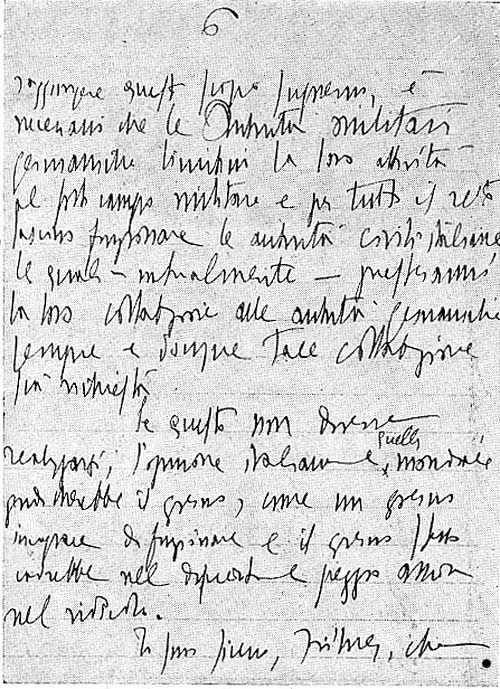 6
raggiungere questo scopo supremo, è
necessario che le Autorità militari
germaniche limitino la loro attività
al solo campo militare e per tutto il resto
lascino funzionare le autorità civili italiane
le quali — naturalmente — presteranno
la loro collaborazione alle autorità germaniche
sempre e dovunque tale collaborazione
sia richiesta.
Se questo non dovesse
realizzarsi, l'opinione italiana e quella mondiale
giudicherebbe il governo, come un governo
incapace di funzionare e il governo stesso
cadrebbe nel discredito e peggio ancora
nel ridicolo.
Io sono sicuro, Führer, che